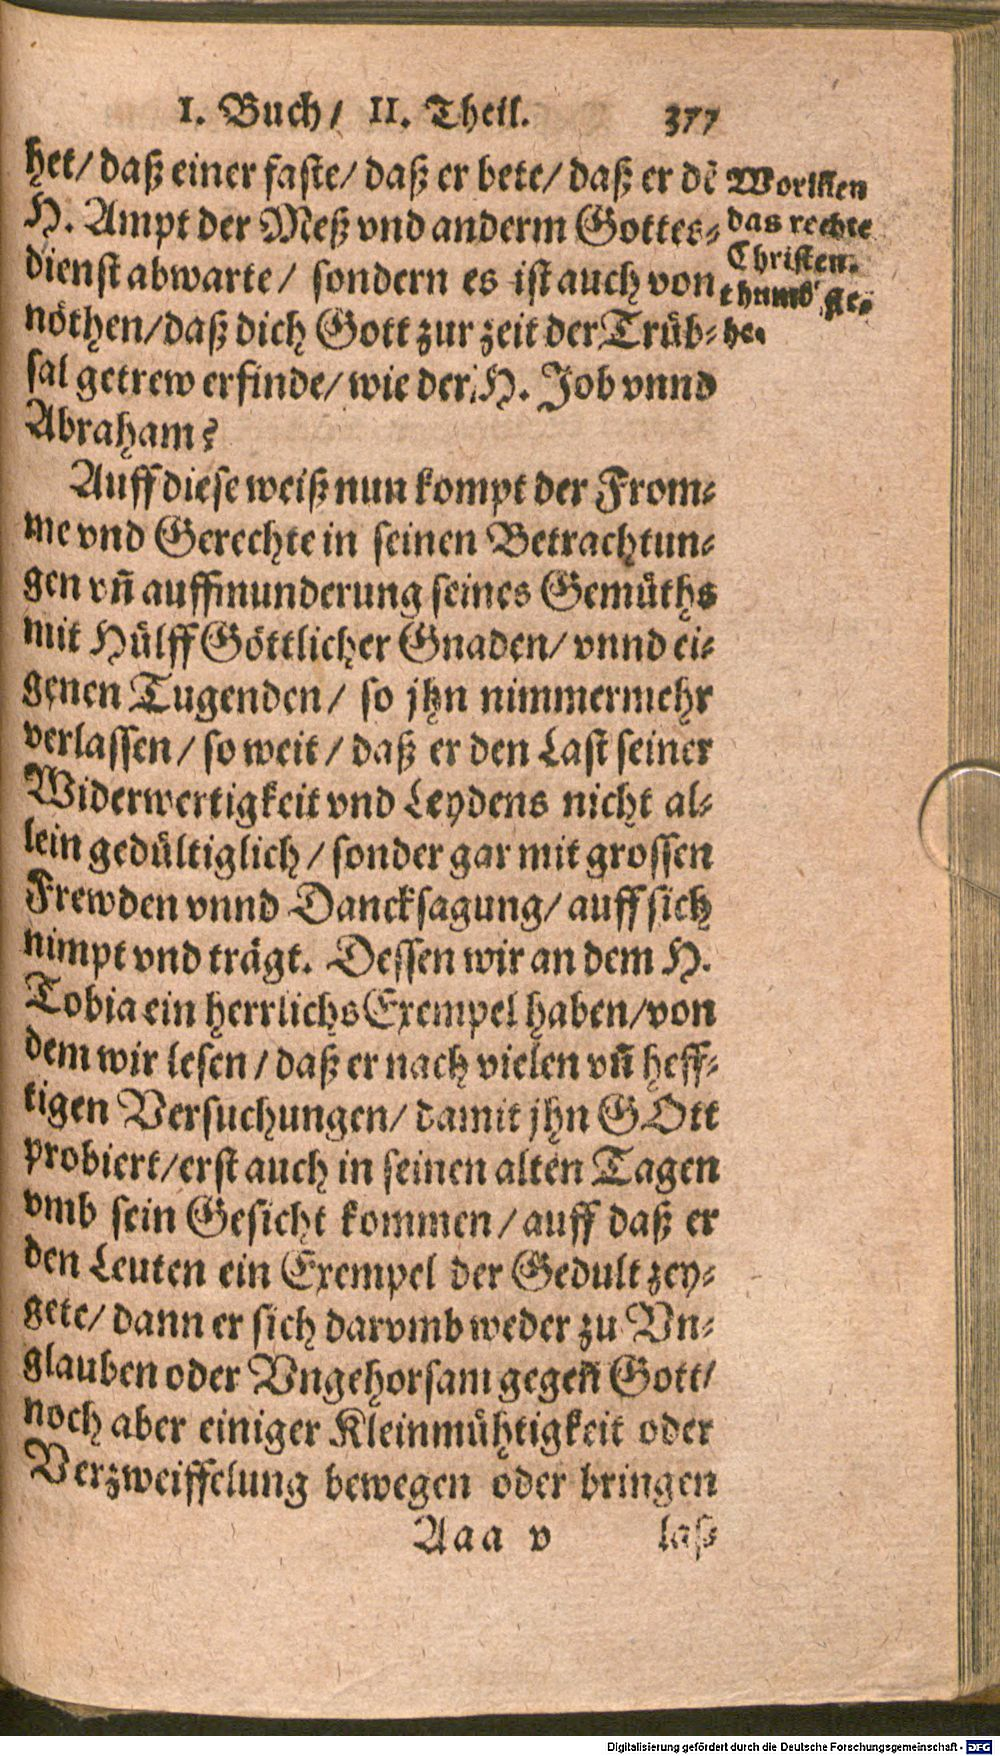 I. Buch/ II. Theil. 377
het/ daß einer faste/ daß er bete/ daß er dē
H. Ampt der Meß vnd anderm Gottes⸗
dienst abwarte/ sondern es ist auch von
nöthen/ daß dich Gott zur zeit der Trüb⸗
sal getrew erfinde/ wie der H. Job vnnd
Abraham?
Worinnen
das rechte
Christen⸗
thumb ge⸗
he.
Auff diese weiß nun kompt der From⸗
me vnd Gerechte in seinen Betrachtun⸗
gen vn̄ auffmunderung seines Gemüths
mit Hülff Göttlicher Gnaden/ vnnd ei⸗
genen Tugenden/ so jhn nimmermehr
verlassen/ so weit/ daß er den Last seiner
Widerwertigkeit vnd Leydens nicht al⸗
lein gedültiglich/ sonder gar mit grossen
Frewden vnnd Dancksagung/ auff sich
nimpt vnd trägt. Dessen wir an dem H.
Tobia ein herrlichs Exempel haben/ von
dem wir lesen/ daß er nach vielen vn̄ heff⸗
tigen Versuchungen/ damit jhn GOtt
probiert/ erst auch in seinen alten Tagen
vmb sein Gesicht kommen/ auff daß er
den Leuten ein Exempel der Gedult zey⸗
gete/ dann er sich darvmb weder zu Vn⸗
glauben oder Vngehorsam gegen Gott/
noch aber einiger Kleinmühtigkeit oder
Verzweiffelung bewegen oder bringen
Aaa v laß⸗
Digitalisierung gefördert durch die Deutsche Forschungsgemeinschaft - DFG